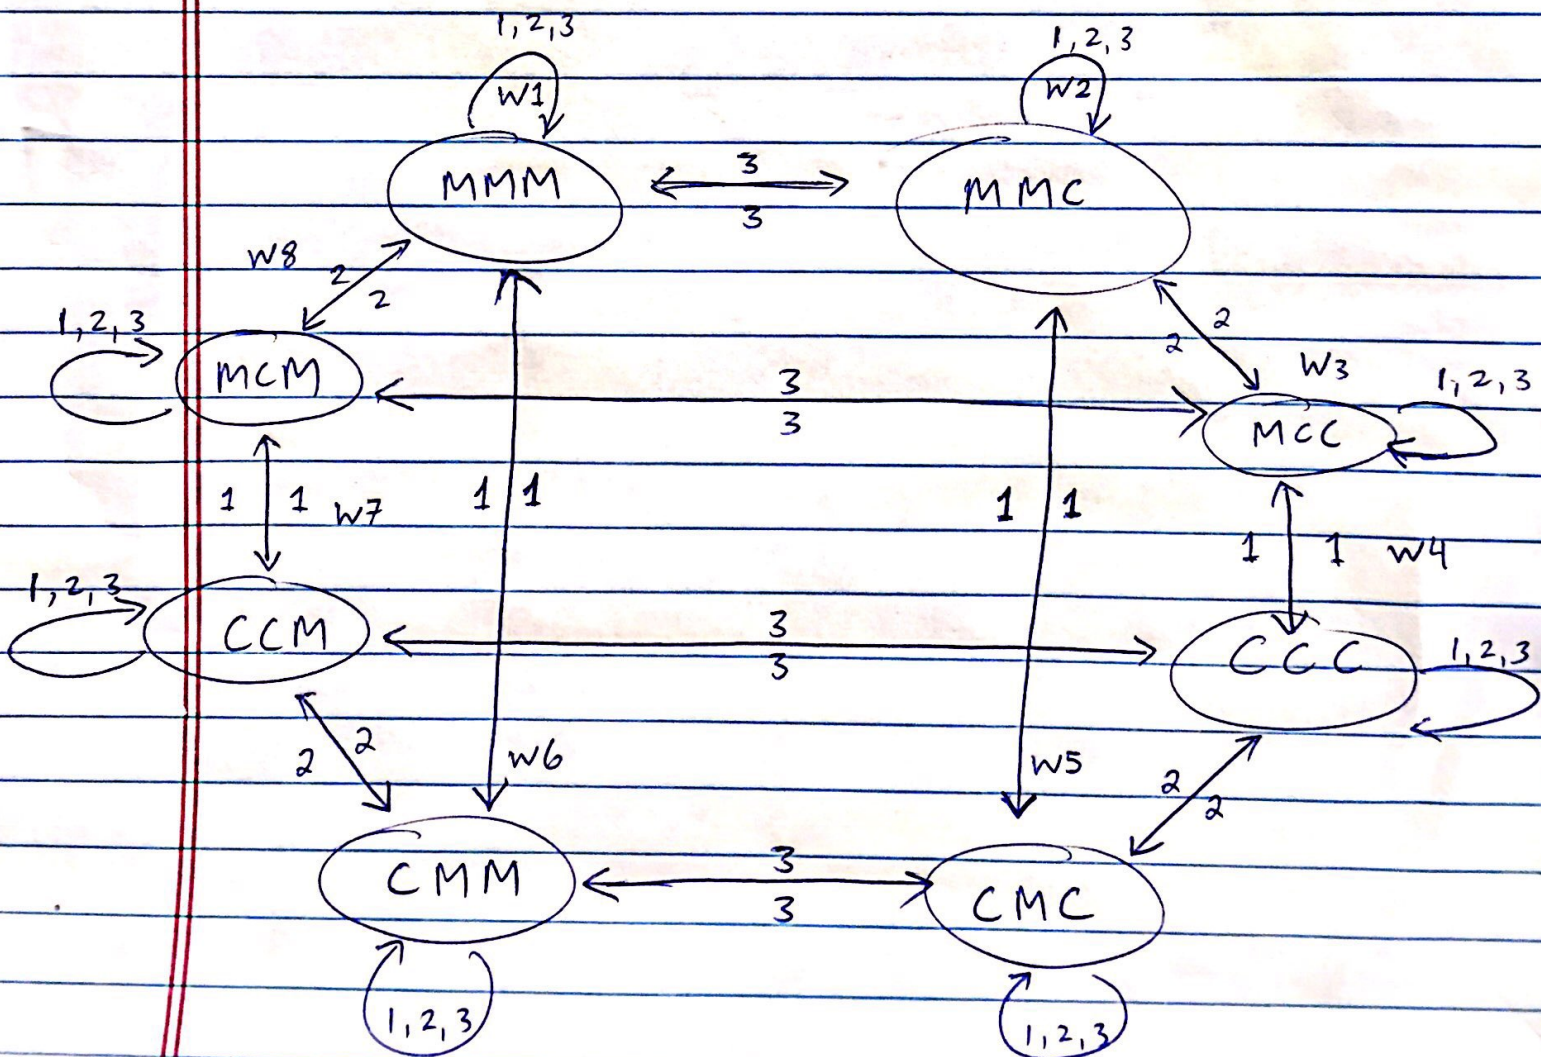 1, 2, 3
1, 2, 3
W1
W2
MMM
3
3
MMC
W8
2
2
2
2
W3
1, 2, 3
MCM
3
3
1, 2, 3
MCC
1
1
W7
1
1
1
1
1
1
W4
1, 2, 3
CCM
3
3
CCC
1, 2, 3
2
2
W6
W5
2
2
CMM
3
3
CMC
1, 2, 3
1, 2, 3